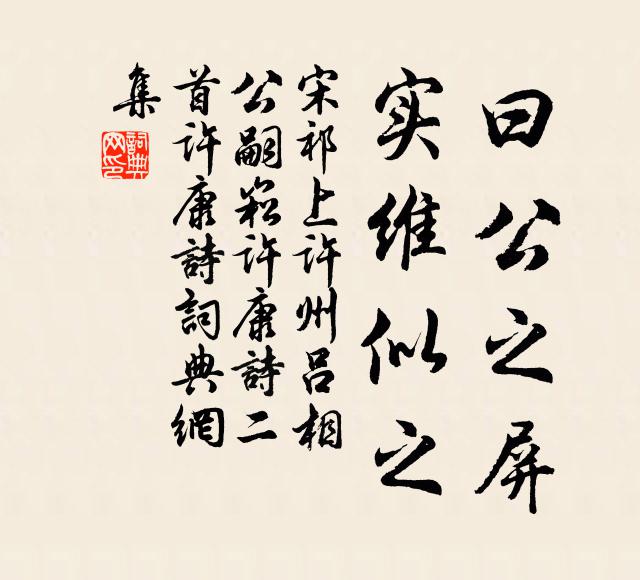 曰公之屏
实维似之
宋祁上许州吕相
公嗣崧许康詩二
首许康詩詞典網
集
詞典網印